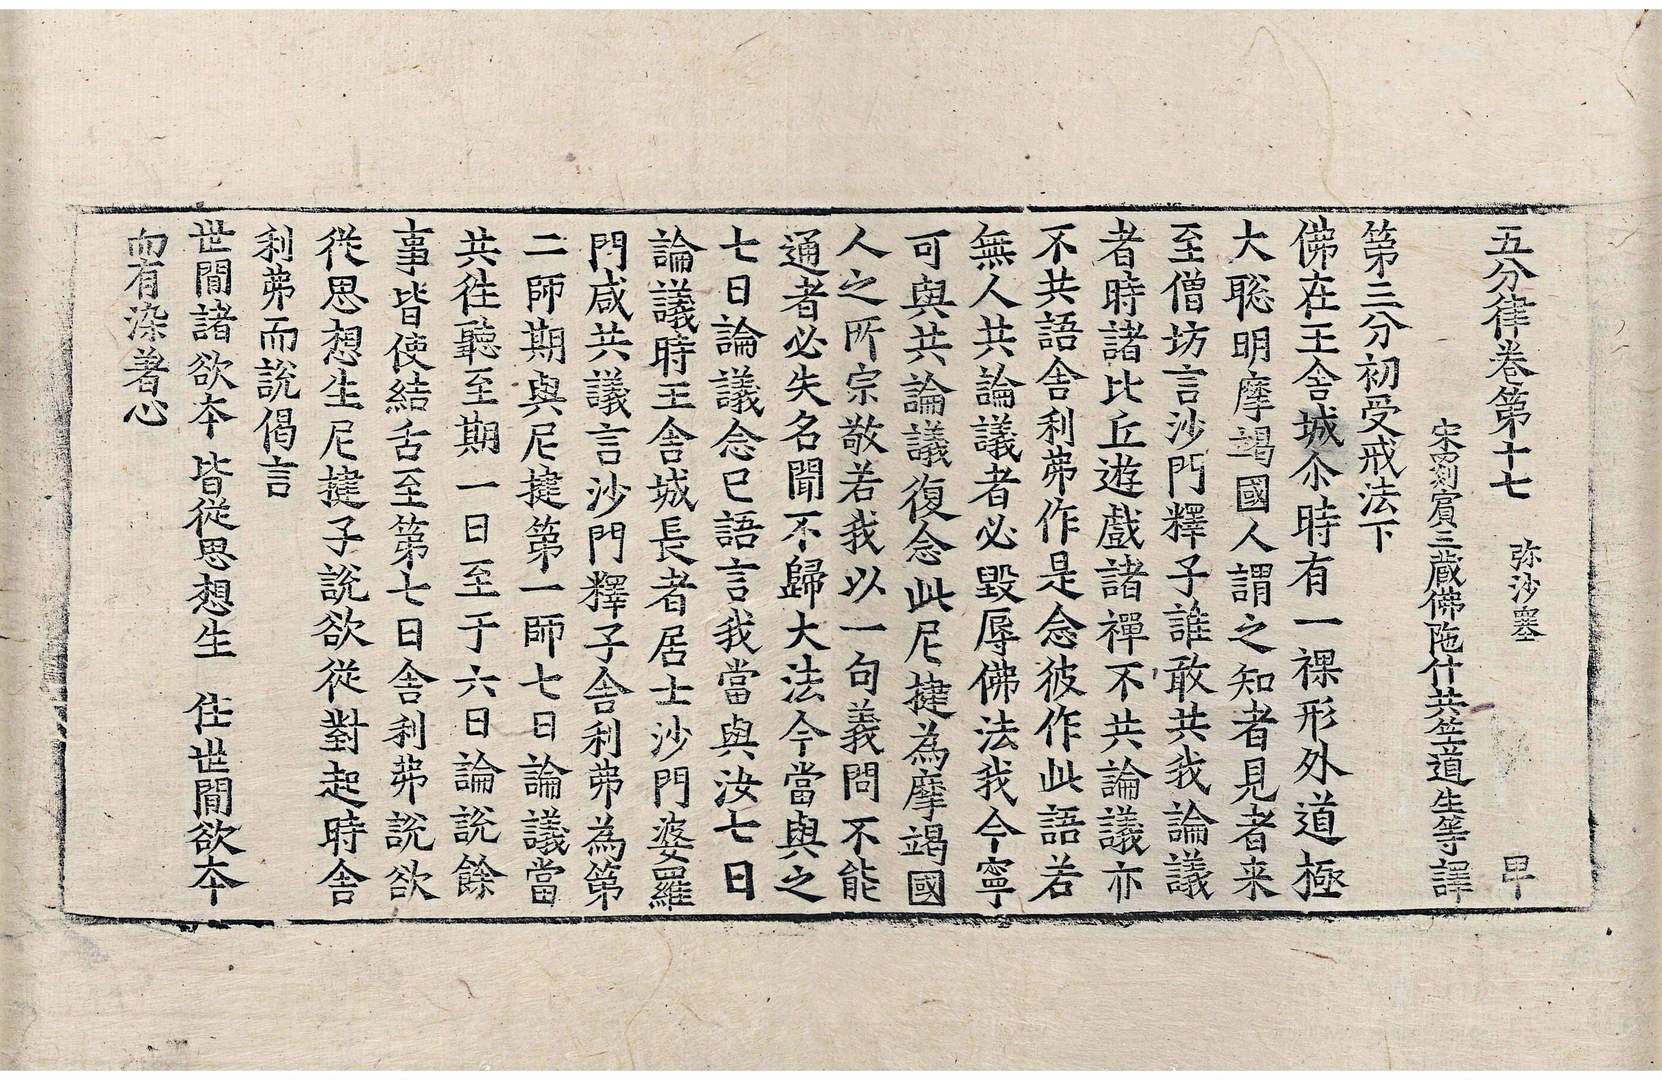 五分律卷第十七 弥沙塞 甲
宋罽賓三藏佛陁什共竺道生等譯
第三分初受戒法下
佛在王舍城尒時有一裸形外道極
大聡明摩竭國人謂之知者見者来
至僧坊言沙門釋子誰敢共我論議
者時諸比丘遊戲諸禪不共論議亦
不共語舍利弗作是念彼作此語若
無人共論議者必毀辱佛法我今寧
可與共論議復念此尼揵為摩竭國
人之所宗敬若我以一句義問不能
通者必失名聞不歸大法今當與之
七日論議念已語言我當與汝七日
論議時王舍城長者居士沙門婆羅
門咸共議言沙門釋子舍利弗為第
二師期與尼揵第一師七日論議當
共往聽至期一日至于六日論說餘
事皆使結舌至第七日舍利弗說欲
從思想生尼揵子說欲從對起時舍
利弗而說偈言
世間諸欲本 皆從思想生 住世間欲本
而有染著心